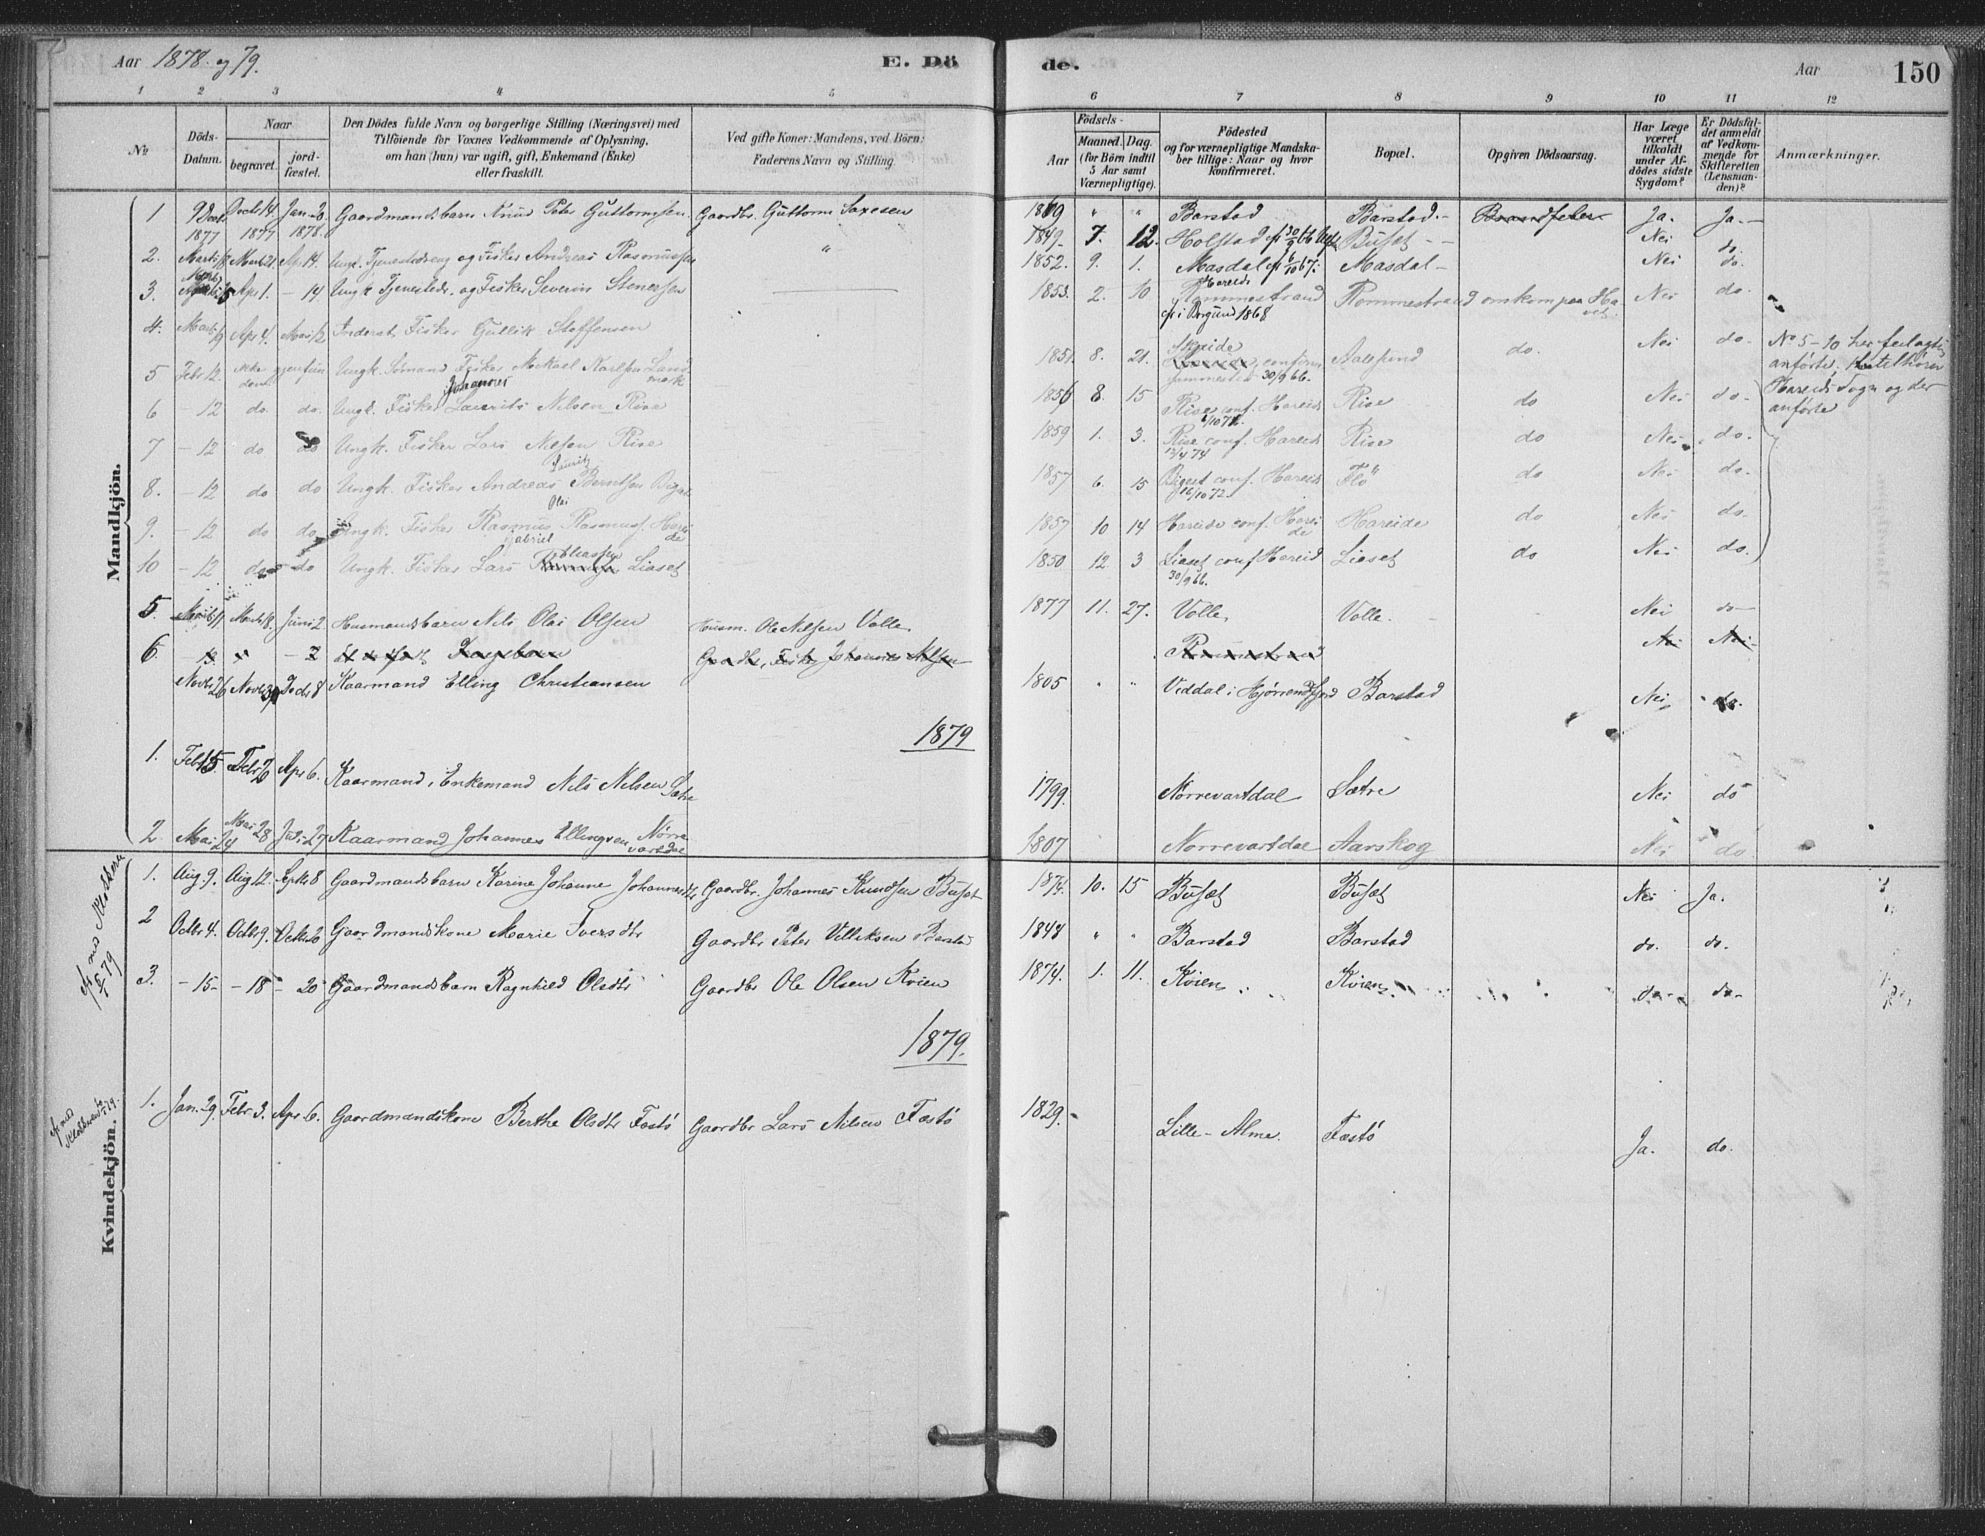 Aar 1878 og 79.
E. Döde.
Aar
150
1 2 3 4 5 6 7 8 9 10 11 12
No.
Döds-Datum.
Naar
begravet.
jordfæstet.
Den Dödes fulde Navn og borgerlige Stilling (Næringsvei) med
Tilföiende for Voxnes Vedkommende af Oplysning,
om han (hun) var ugift, gift, Enkemand (Enke)
eller fraskilt.
Ved gifte Koner: Mandens, ved Börn:
Faderens Navn og Stilling.
Födsels-
Aar
Maaned. Dag.
(for Börn indtil
5 Aar samt
Værnepligtige).
Födested
og for værnepligtige Mandska-
ber tillige: Naar og hvor
konfirmeret.
Bopæl.
Opgiven Dödsaarsag.
Har Læge
været
tilkaldt
under Af-
dödes sidste
Sygdom?
Er Dödsfal-
det anmeldt
af Vedkom-
mende for
Skifteretten
(Lensman-
den)?
Anmærkninger.
Mandkjön.
1 9 Decbr. 1877 Decbr 14 1877 Jan. 20 1878. Gaardmandsbarn Knud Peter Guttormsen Gaardbr. Guttorm Saxesen 1869 " " Barstad Barstad Ja. Ja.
2. Marts 18 Marts 21 Apr 14. Ungk. Tjenestedreng og Fisker Andreas Rasmussen " 1849 7. 12. Holstad cf 30/9 66 Buset Nei do.
3. Apr 1. - 14 Ungk Tjenestedr. og Fisker Severin Stenersen 1852. 9. 1. Masdal cf 6/10 67. Masdal Nei do.
4. Marts 9 Apr 4. Mai 12 Inderst Fisker Gullik Steffensen 1853. 2. 10 Hareids Rommestrand cf i Borgund 1868 Rommestrand omkom paa Havet. Nei do.
5 Febr 12. ikke gjenfundent Ungk. Sömand Fisker Mikael Karlsen Landmark 1851. 8. 21. Skeide confirm 30/9 66. Aalesund do. Nei do. No 5-10 her feilagtig
anförte, tilhörer
Hareids Sogn og der
anförte
6 - 12 do. do. Ungk. Fisker Laurits Johannes Nilsen Rise 1856 8. 15 Rise conf. Hareid 6/10 72. Rise do Nei do.
7 - 12 do do Ungk. Fisker Lars Nilsen Rise 1859 1. 3. Rise conf. Hareid 12/4 74 Rise do Nei do.
8. - 12 do do Ungk. Fisker Andreas Laurits Berntsen Bigset 1857 6. 15 Bigset conf. Hareid 16/10 72. Flö do Nei do.
9. - 12 do do Ungk. Fisker Rasmus Olai Rasmuss. Hareide 1857 10 14 Hareide conf. Hareide Hareide do Nei do.
10 - 12 do do Ungk. Fisker Lars Gabriel Eliassen Liaset 1850 12. 3 Liaset conf Hareid 30/9 66. Liaset do Nei do.
5. Marts 11 Marts 18. Juni 2 Husmandsbarn Nils Olai Olsen Husm. Ole Nilsen Volle 1877 11. 27. Volle Volle. Nei do
6. - 13 - 2 Gaardbr, Fisker Johannes Nilsen Nei Nei
Novbr 26 Novbr 30 Decbr 8 Kaarmand Elling Christiansen 1805 " " Viddal i Hjörrendfjord Barstad Nei do.
1879
1. Febr 15. Febr 26 Apr 6. Kaarmand, Enkemand Nils Nilsen Sætre 1799 Norrevartdal Sætre Nei do
2. Mai 24 Mai 28 Juli 27 Kaarmand Johannes Ellingsen Nörrevartdal 1807 Norrevartdal Aarskog Nei do
Kvindekjön.
1. Aug. 9. Aug 12. Septbr 8 Gaardmandsbarn Karine Johanne Johannesdtr Gaardbr. Johannes Knudsen Buset 1874. 10. 15 Buset Buset Nei Ja.
2 Octbr 4. Octbr 9. Octbr 20 Gaardmandskone Marie Iversdtr Gaardbr Peter Villiksen Barstad 1848 " " Barstad Barstad do. do.
3. - 15 - - 18 - 20 Gaardmandsbarn Ragnhild Olsdtr Gaardbr Ole Olsen Kvien 1874. 1. 11. Kvien Kvien do do
1879.
1. Jan. 29. Febr 3. Apr 6. Gaardmandskone Berthe Olsdtr Fastö Gaardbr Lars Nilsen Fastö 1829. Lille-Alme. Fastö Ja. do.